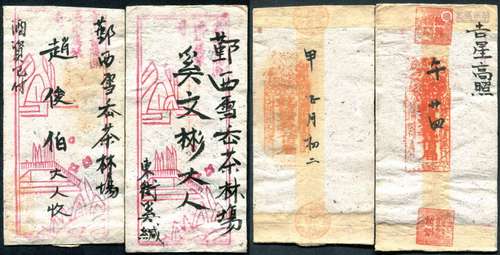 鄞西雪岙茶林場
趙使伯大人收
酒資已付
鄞西雪岙茶林場
奚文彬大人
東街奚緘
甲 正月初二
吉星高照
午 廿四